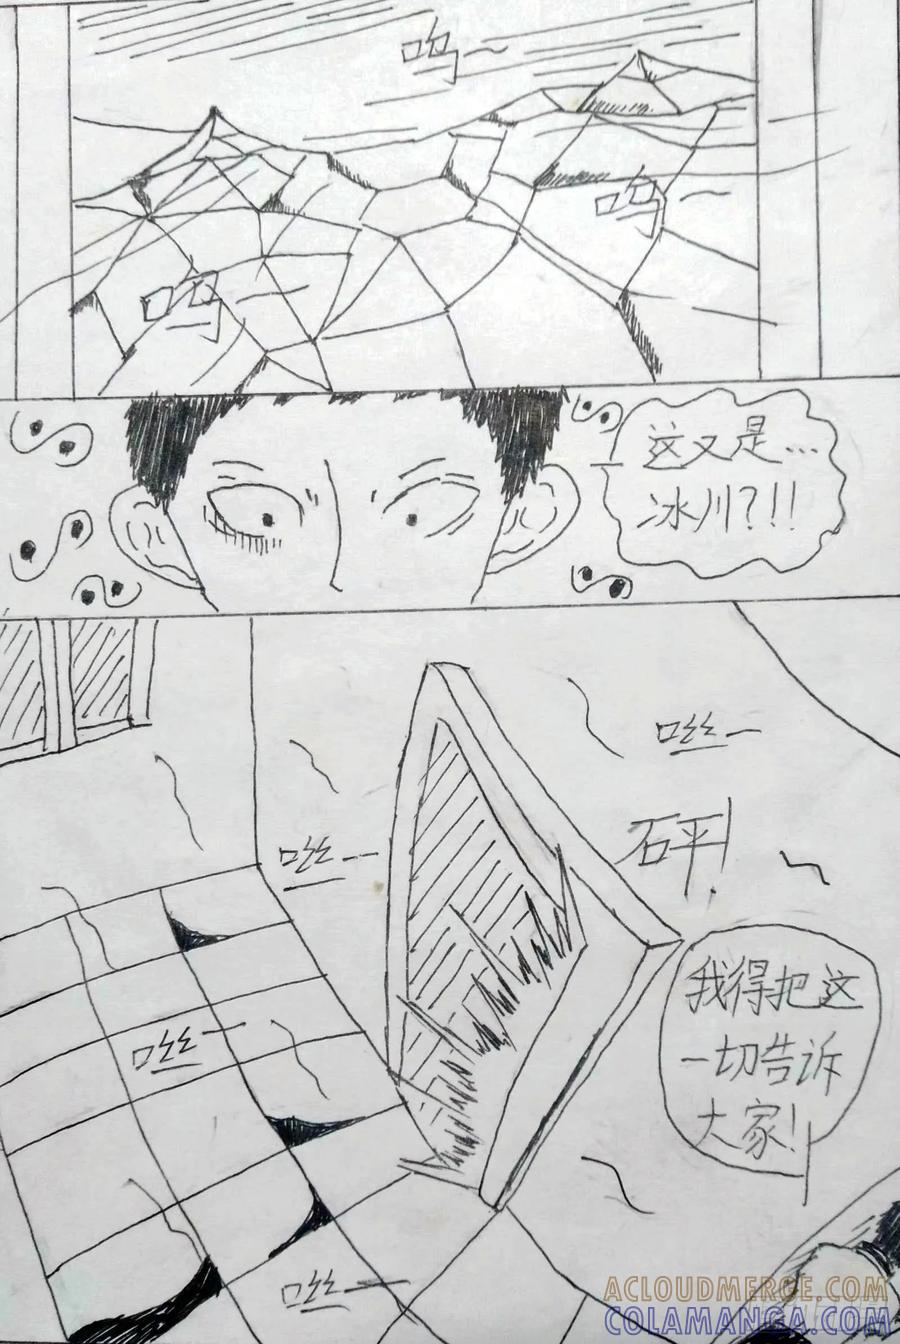 呜~
呜~
呜~
这又是…
冰川?!!
咝—
砰!
咝—
我得把这
一切告诉
大家!
咝—
咝—
ACLOUDMERGE.COM
COLAMANGA.COM